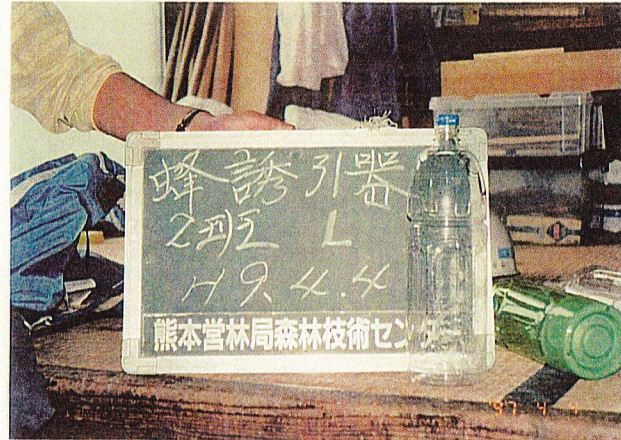 蜂誘引器
2班 L
H9.4.4
熊本営林局森林技術センター
'97 4